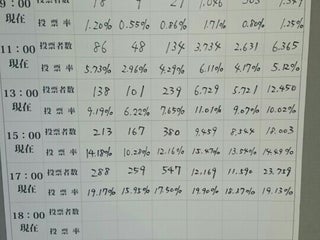 9:00 投票者数 18 9 21
現在 投票率 1.20% 0.55% 0.86% 1.71% 0.80% 1.25%
11:00 投票者数 86 48 134 3.734 2.631 6.365
現在 投票率 5.73% 2.96% 4.29% 6.11% 4.17% 5.12%
13:00 投票者数 138 101 239 6.729 5.721 12.450
現在 投票率 9.19% 6.22% 7.65% 11.01% 9.07% 10.02%
15:00 投票者数 213 167 380 9.459 8.544 18.003
現在 投票率 14.18% 10.28% 12.16% 15.47% 13.54% 14.49%
17:00 投票者数 288 259 547 12.169 11.590 23.759
現在 投票率 19.17% 15.95% 17.50% 19.90% 18.37% 19.13%
18:00 投票者数
現在 投票率